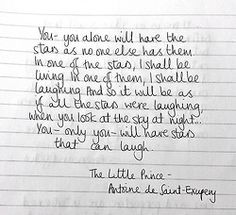 You- you alone will have the
stars as no one else has them.
In one of the stars, I shall be
living. In one of them, I shall be
laughing. And so it will be as
if all the stars were laughing,
when you look at the sky at night...
You- only you- will have stars
that can laugh.
The Little Prince -
Antoine de Saint-Exupery